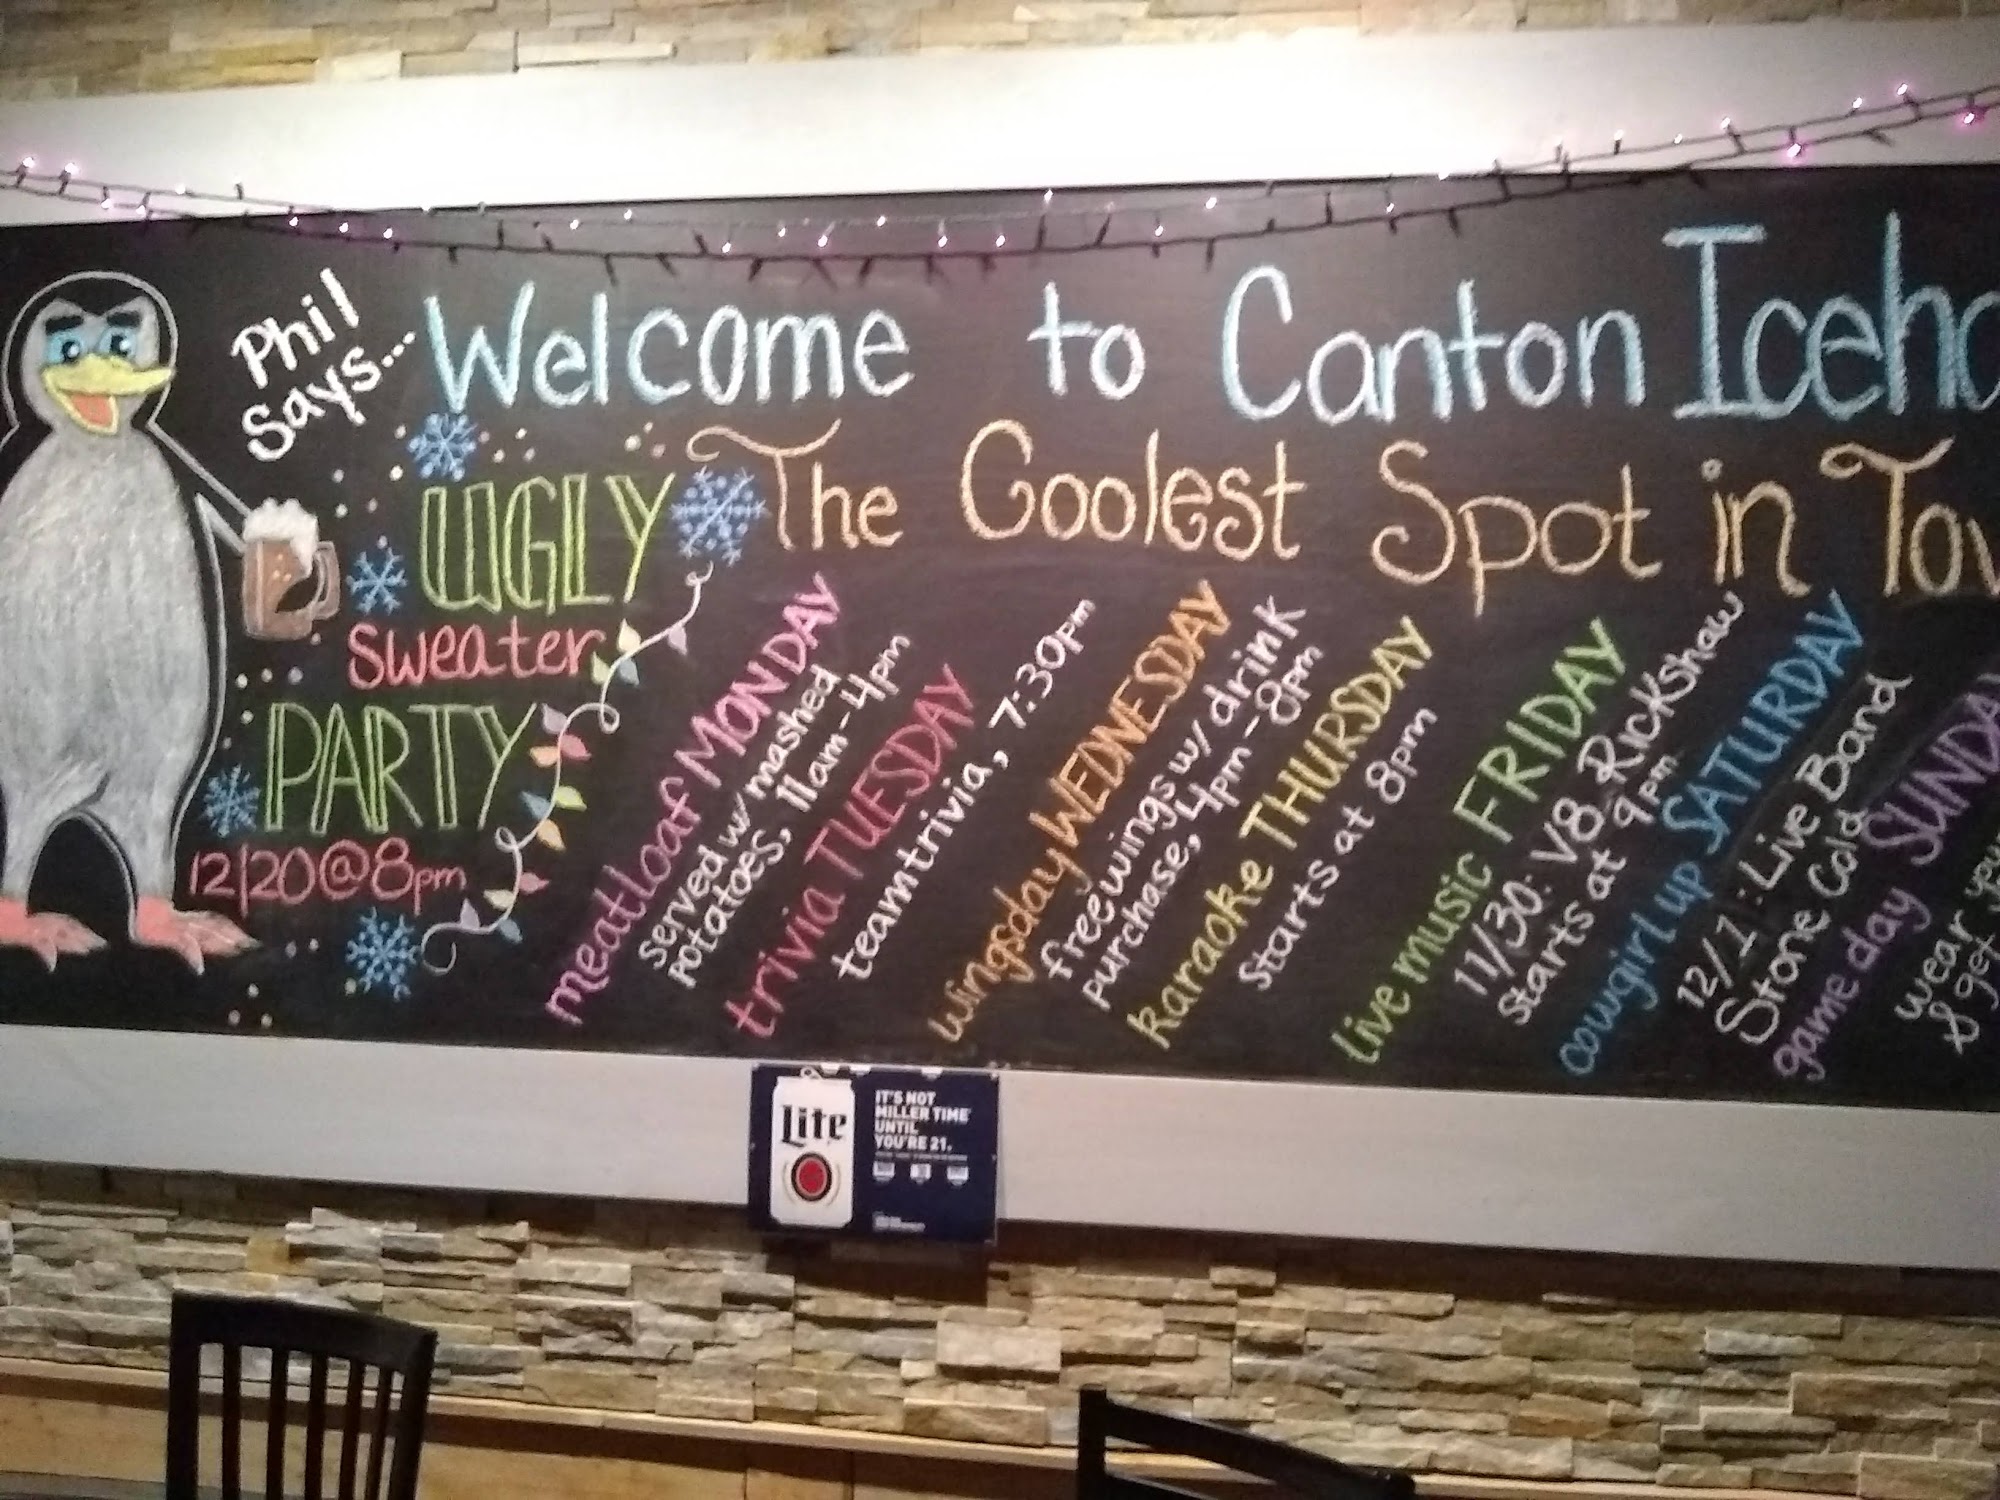 Phil
says...
Welcome to Canton Iceho
The Coolest Spot in Tow
UGLY
sweater
PARTY
12/20@8pm
meatloaf MONDAY
served w/ mashed
potatoes, 11am-4pm
trivia TUESDAY
team trivia, 7:30pm
wingsday WEDNESDAY
free wings w/ drink
purchase, 4pm-8pm
karaoke THURSDAY
Starts at 8pm
live music FRIDAY
11/30: V8 Rickshaw
Starts at 9pm
cowgirl up SATURDAY
12/1: Live Band
Stone Cold
game day SUNDA
wear you
& get
Lite
IT'S NOT
MILLER TIME
UNTIL
YOU'RE 21.